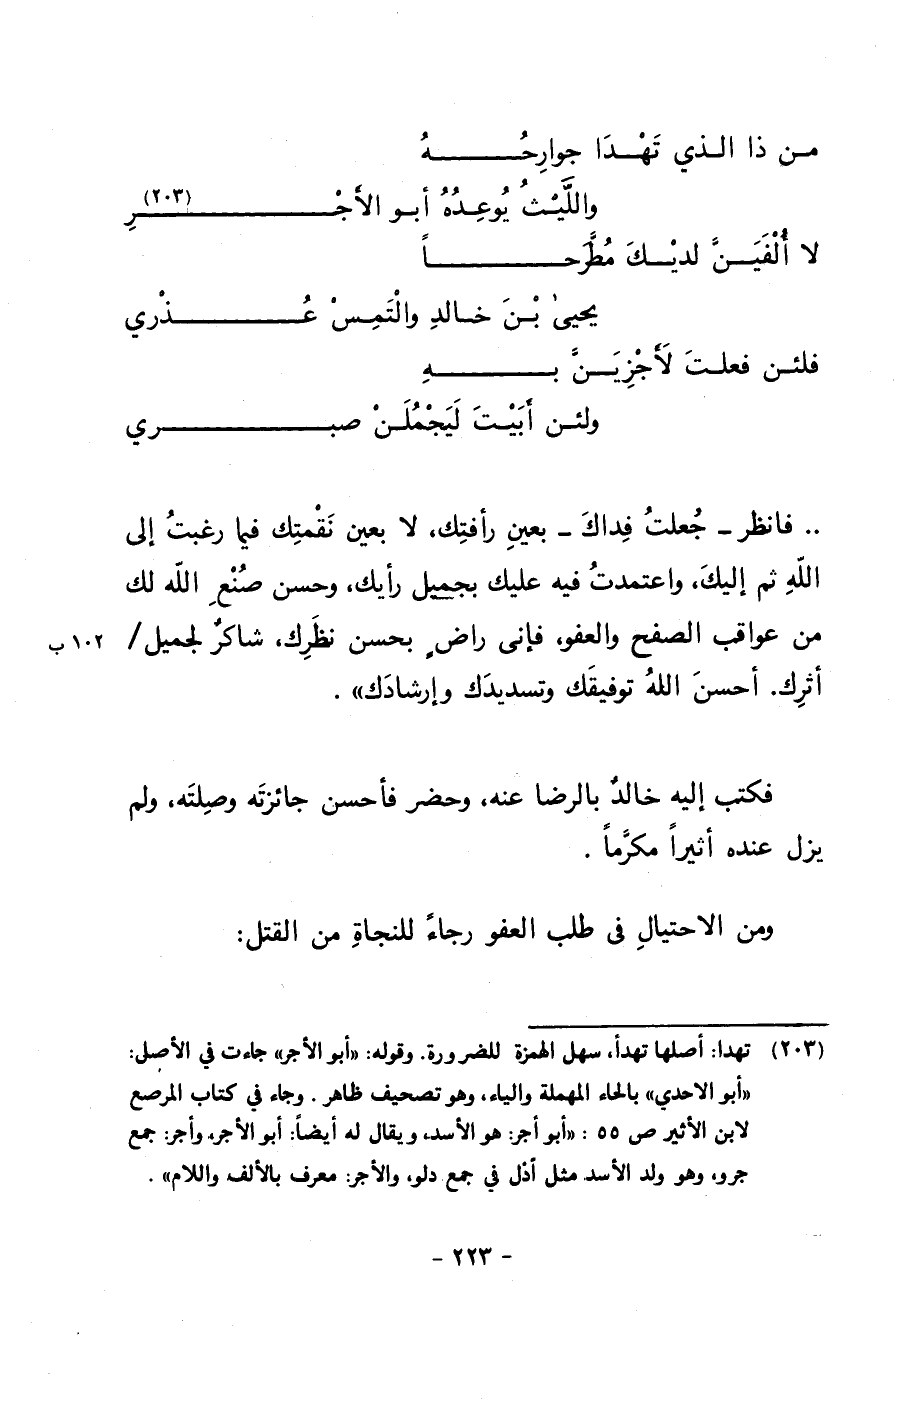 من ذا الذي تَهْدَا جوارِحُهُ
واللَّيْثُ يُوعِدُهُ أبو الأَجْرِ (٢٠٣)
لا أُلْفَيَنَّ لديْكَ مُطَّرَحاً
يحيىٰ بْنَ خالدِ والْتَمِسْ عُذْري
فلئن فعلتَ لَأَجْزِيَنَّ بهِ
ولئن أَبَيْتَ لَيَجْمُلَنْ صبري
.. فانظر – جُعلتُ فِداكَ – بعينِ رأفتِك، لا بعين نَقْمتِك فيما رغبتُ إلى
اللّهِ ثم إليكَ، واعتمدتُ فيه عليك بجميل رأيك، وحسن صُنْعِ اللّه لك
من عواقب الصفح والعفو، فإنى راضٍ بحسن نظَرِك، شاكرٌ لجميل/ ١٠٢ ب
أثرِك. أحسنَ اللهُ توفيقَك وتسديدَك وإرشادَك» .
فكتب إليه خالدٌ بالرضا عنه، وحضر فأحسن جائزتَه وصِلتَه، ولم
يزل عنده أثيراً مكرَّماً .
ومن الاحتيالِ فى طلب العفو رجاءً للنجاةِ من القتل:
(٢٠٣) تهدا: أصلها تهدأ، سهل الهمزة للضرورة. وقوله: «أبو الأجر» جاءت في الأصل:
«أبو الاحدي» بالحاء المهملة والياء، وهو تصحيف ظاهر . وجاء في كتاب المرصع
لابن الأثير ص ٥٥ : «أبو أجر: هو الأسد، ويقال له أيضاً: أبو الأجر، وأجر: جمع
جرو، وهو ولد الأسد مثل أدْل في جمع دلو، والأجر: معرف بالألف واللام» .
- ٢٢٣ -